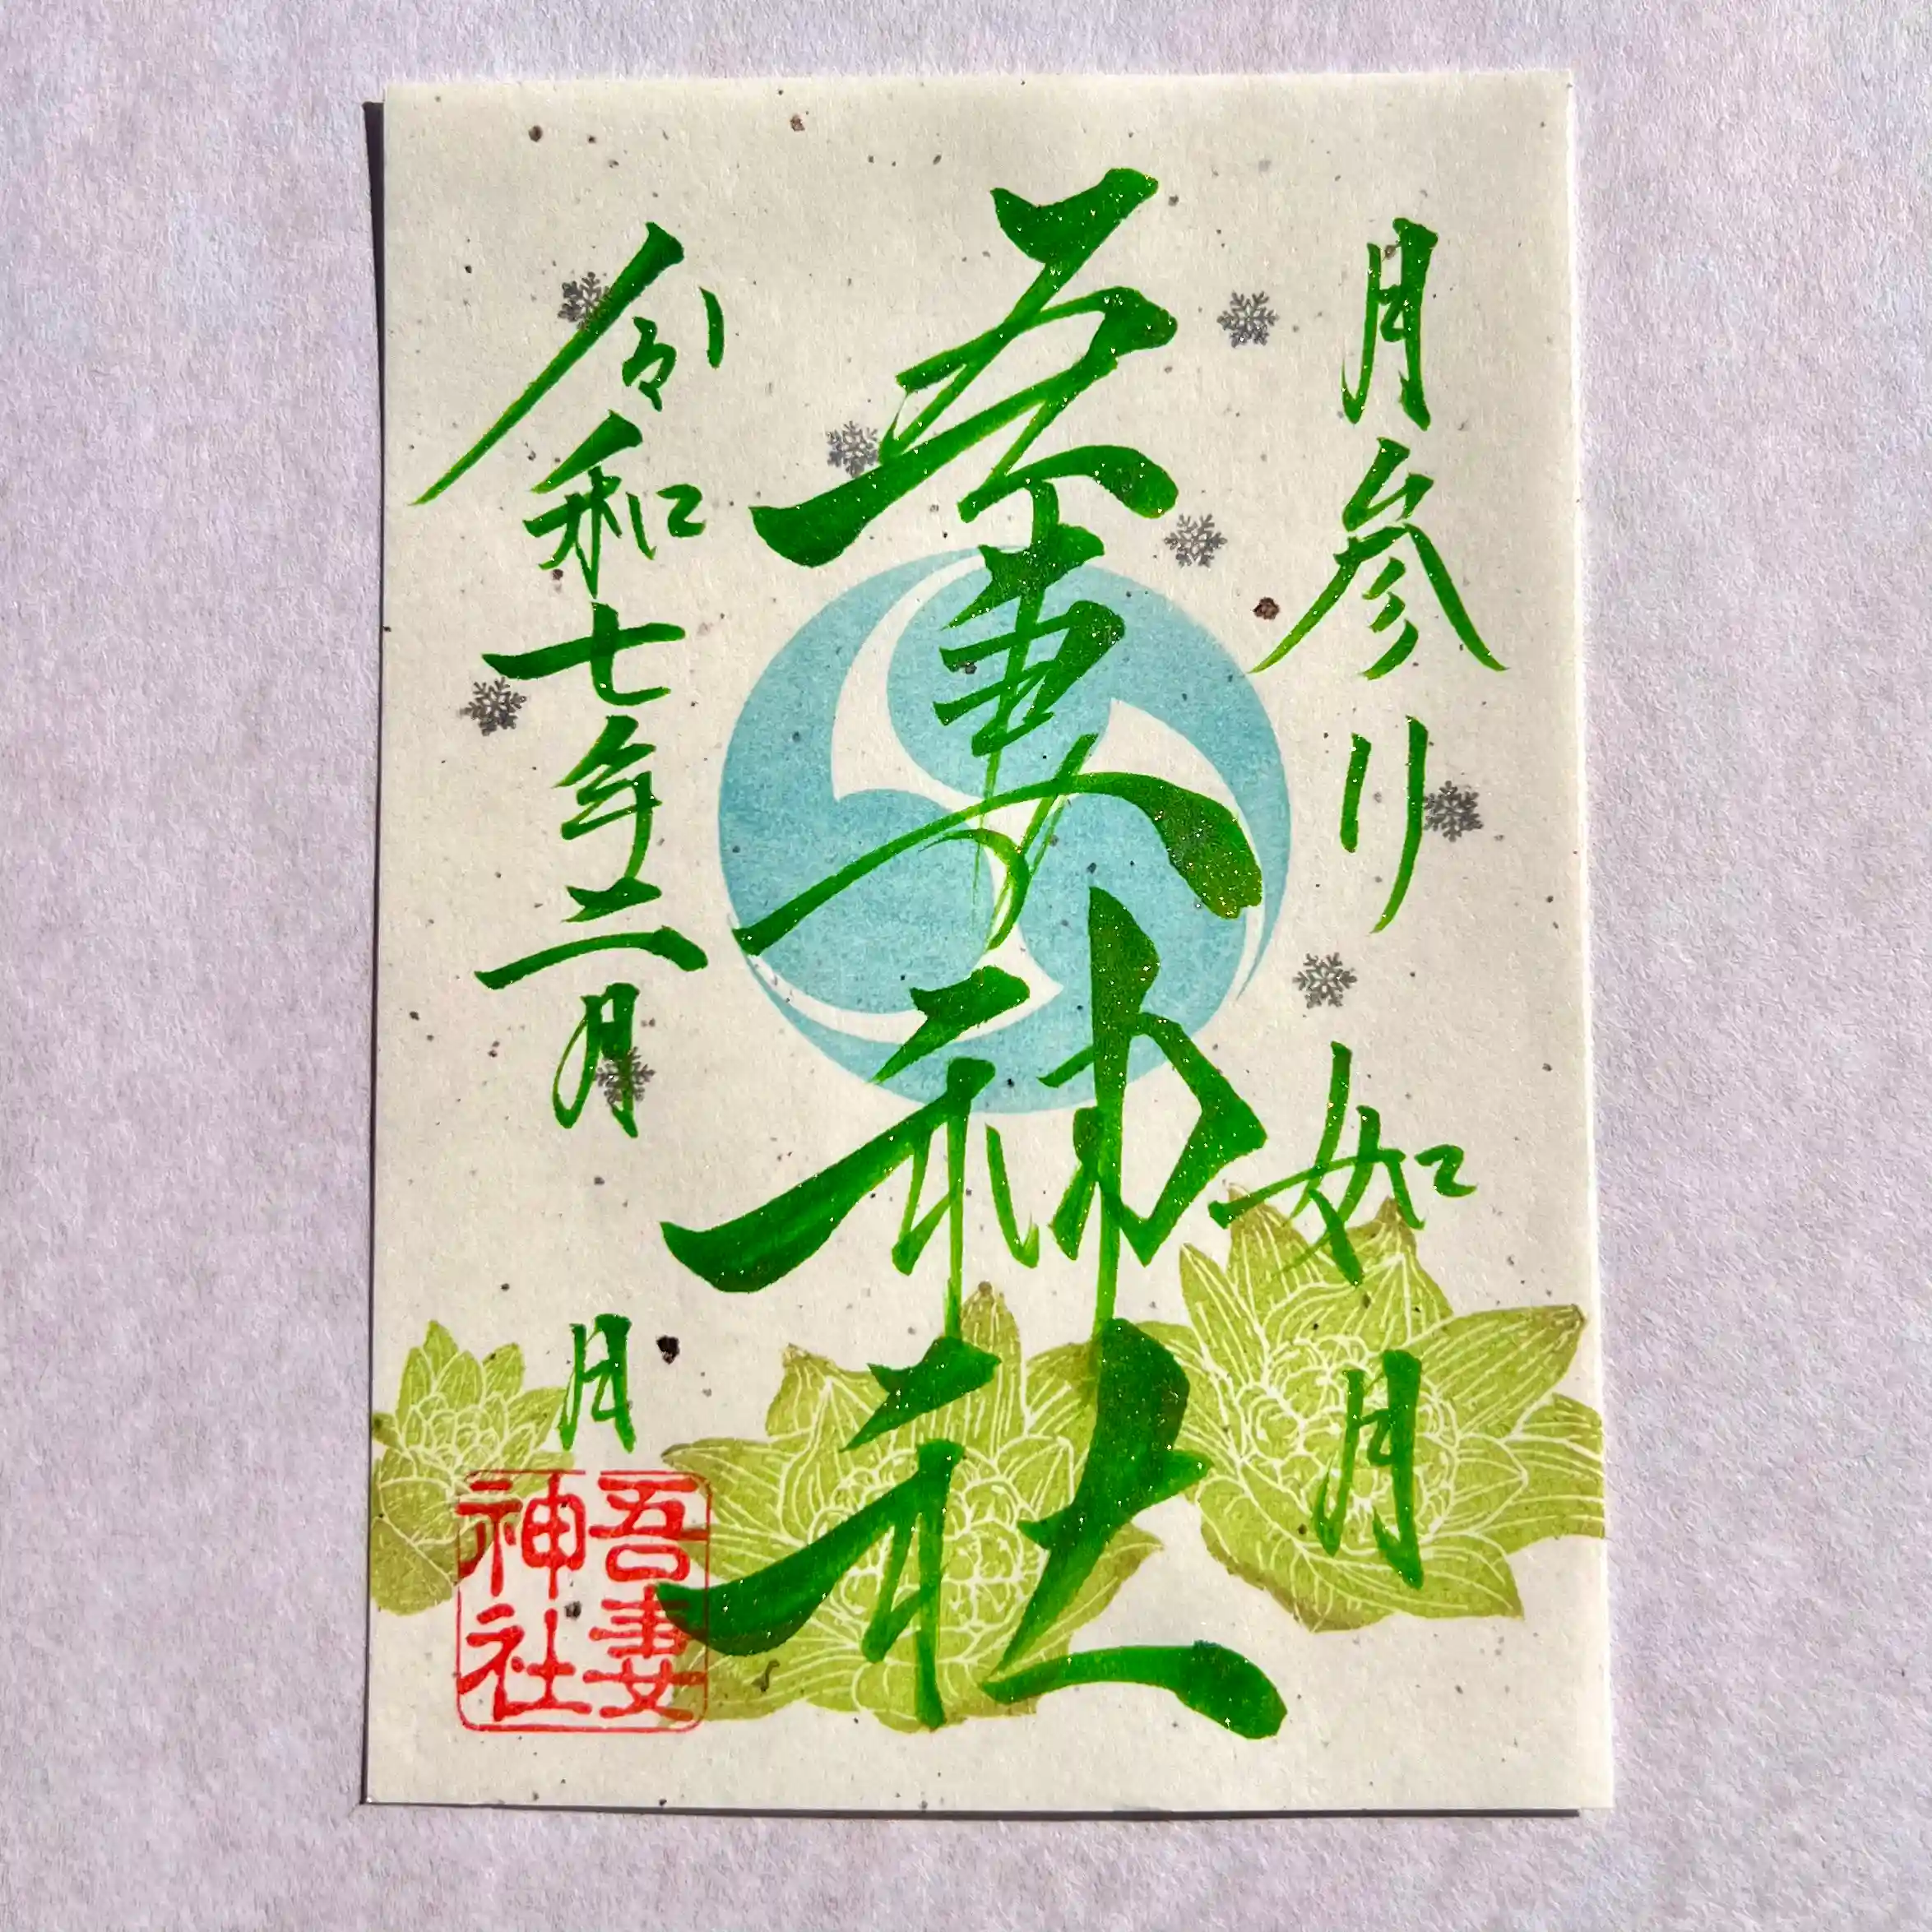 月参り 如月
吾妻神社
令和七年二月 日
吾妻神社